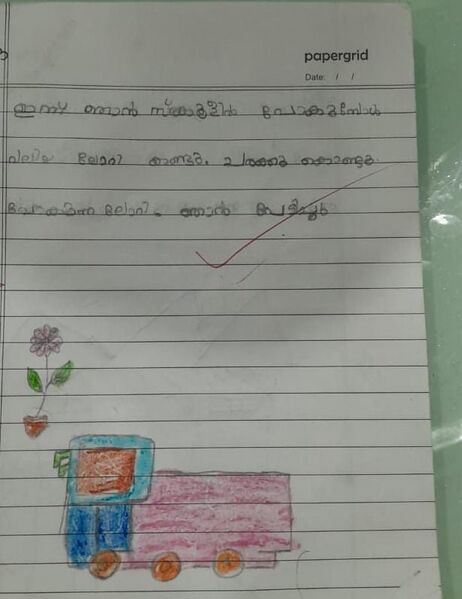 papergrid
Date: / /
ഇന്ന് ഞാൻ സ്കൂളിൽ പോകുമ്പോൾ
വലിയ ലോറി കണ്ടു. ചരക്കു കൊണ്ടു
പോകുന്ന ലോറി. ഞാൻ പേടിച്ചു